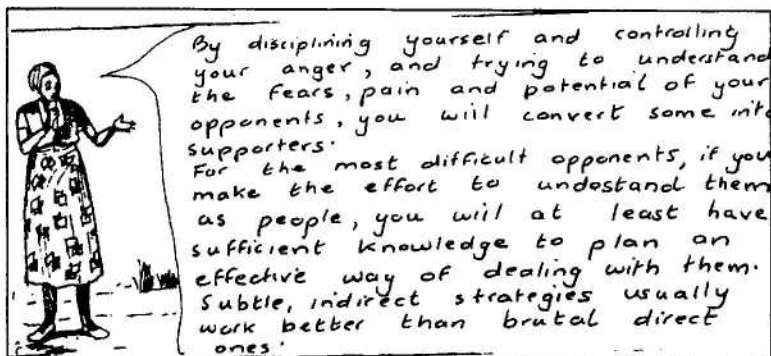 By disciplining yourself and controlling
your anger, and trying to understand
the fears, pain and potential of your
opponents, you will convert some into
supporters.
For the most difficult opponents, if you
make the effort to undestand them
as people, you will at least have
sufficient knowledge to plan an
effective way of dealing with them.
Subtle, indirect strategies usually
work better than brutal direct
ones.